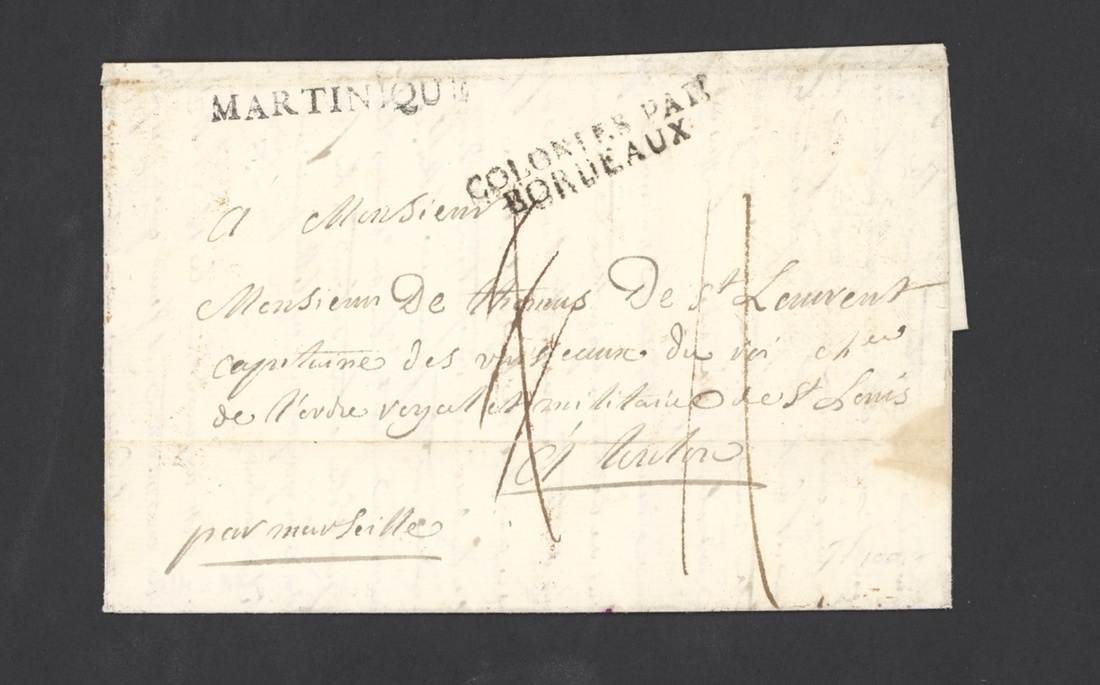 MARTINIQUE
COLONIES PAR
BORDEAUX
A Monsieur
Monsieur De thomas De St Laurent
capitaine des vaisseaux du roi cher
de l'ordre royal et militaire de St Louis
A toulon
par marseille